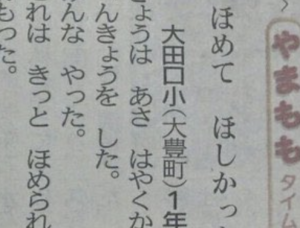 やまもも タイム
ほめて ほしかっ
大田口小(大豊町)1年
ょうは あさ はやくか
んきょうを した。
んな やった。
れは きっと ほめられ
もった。